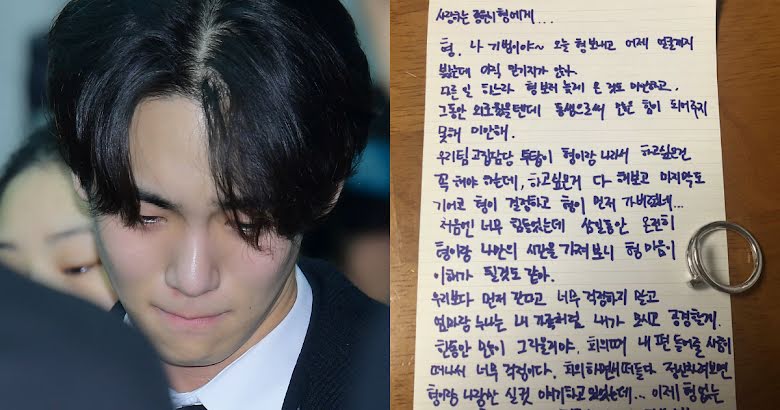 사랑하는 종현이형에게...
형. 나 기범이야~ 오늘 형 보내고 어제 얼굴까지
봤는데 아직 믿기지가 않아.
다른 일 하느라 형보러 늦게 온 것도 미안하고.
그동안 외로웠을텐데 동생으로써 온전한 힘이 되어주지
못해 미안해.
우리팀 고집담당 투탑이 형이랑 나라서 하고싶은건
꼭 해야 하는데, 하고싶은거 다 해보고 마지막도
기어코 형이 결정하고 형이 먼저 가버렸네...
처음엔 너무 힘들었는데 삼일동안 온전히
형이랑 나만의 시간을 가져보니 형 마음이
이해가 될것도 같아.
우리보다 먼저 간다고 너무 걱정하지 말고
엄마랑 누나는 내 가족처럼 내가 모시고 공경할게.
한동안 많이 그리울거야. 회의때 내 편 들어줄 사람이
떠나서 너무 걱정이다. 회의하면서 떠들다 정신차려보면
형이랑 나랑만 실컷 얘기하고 있었는데... 이제 형 없는